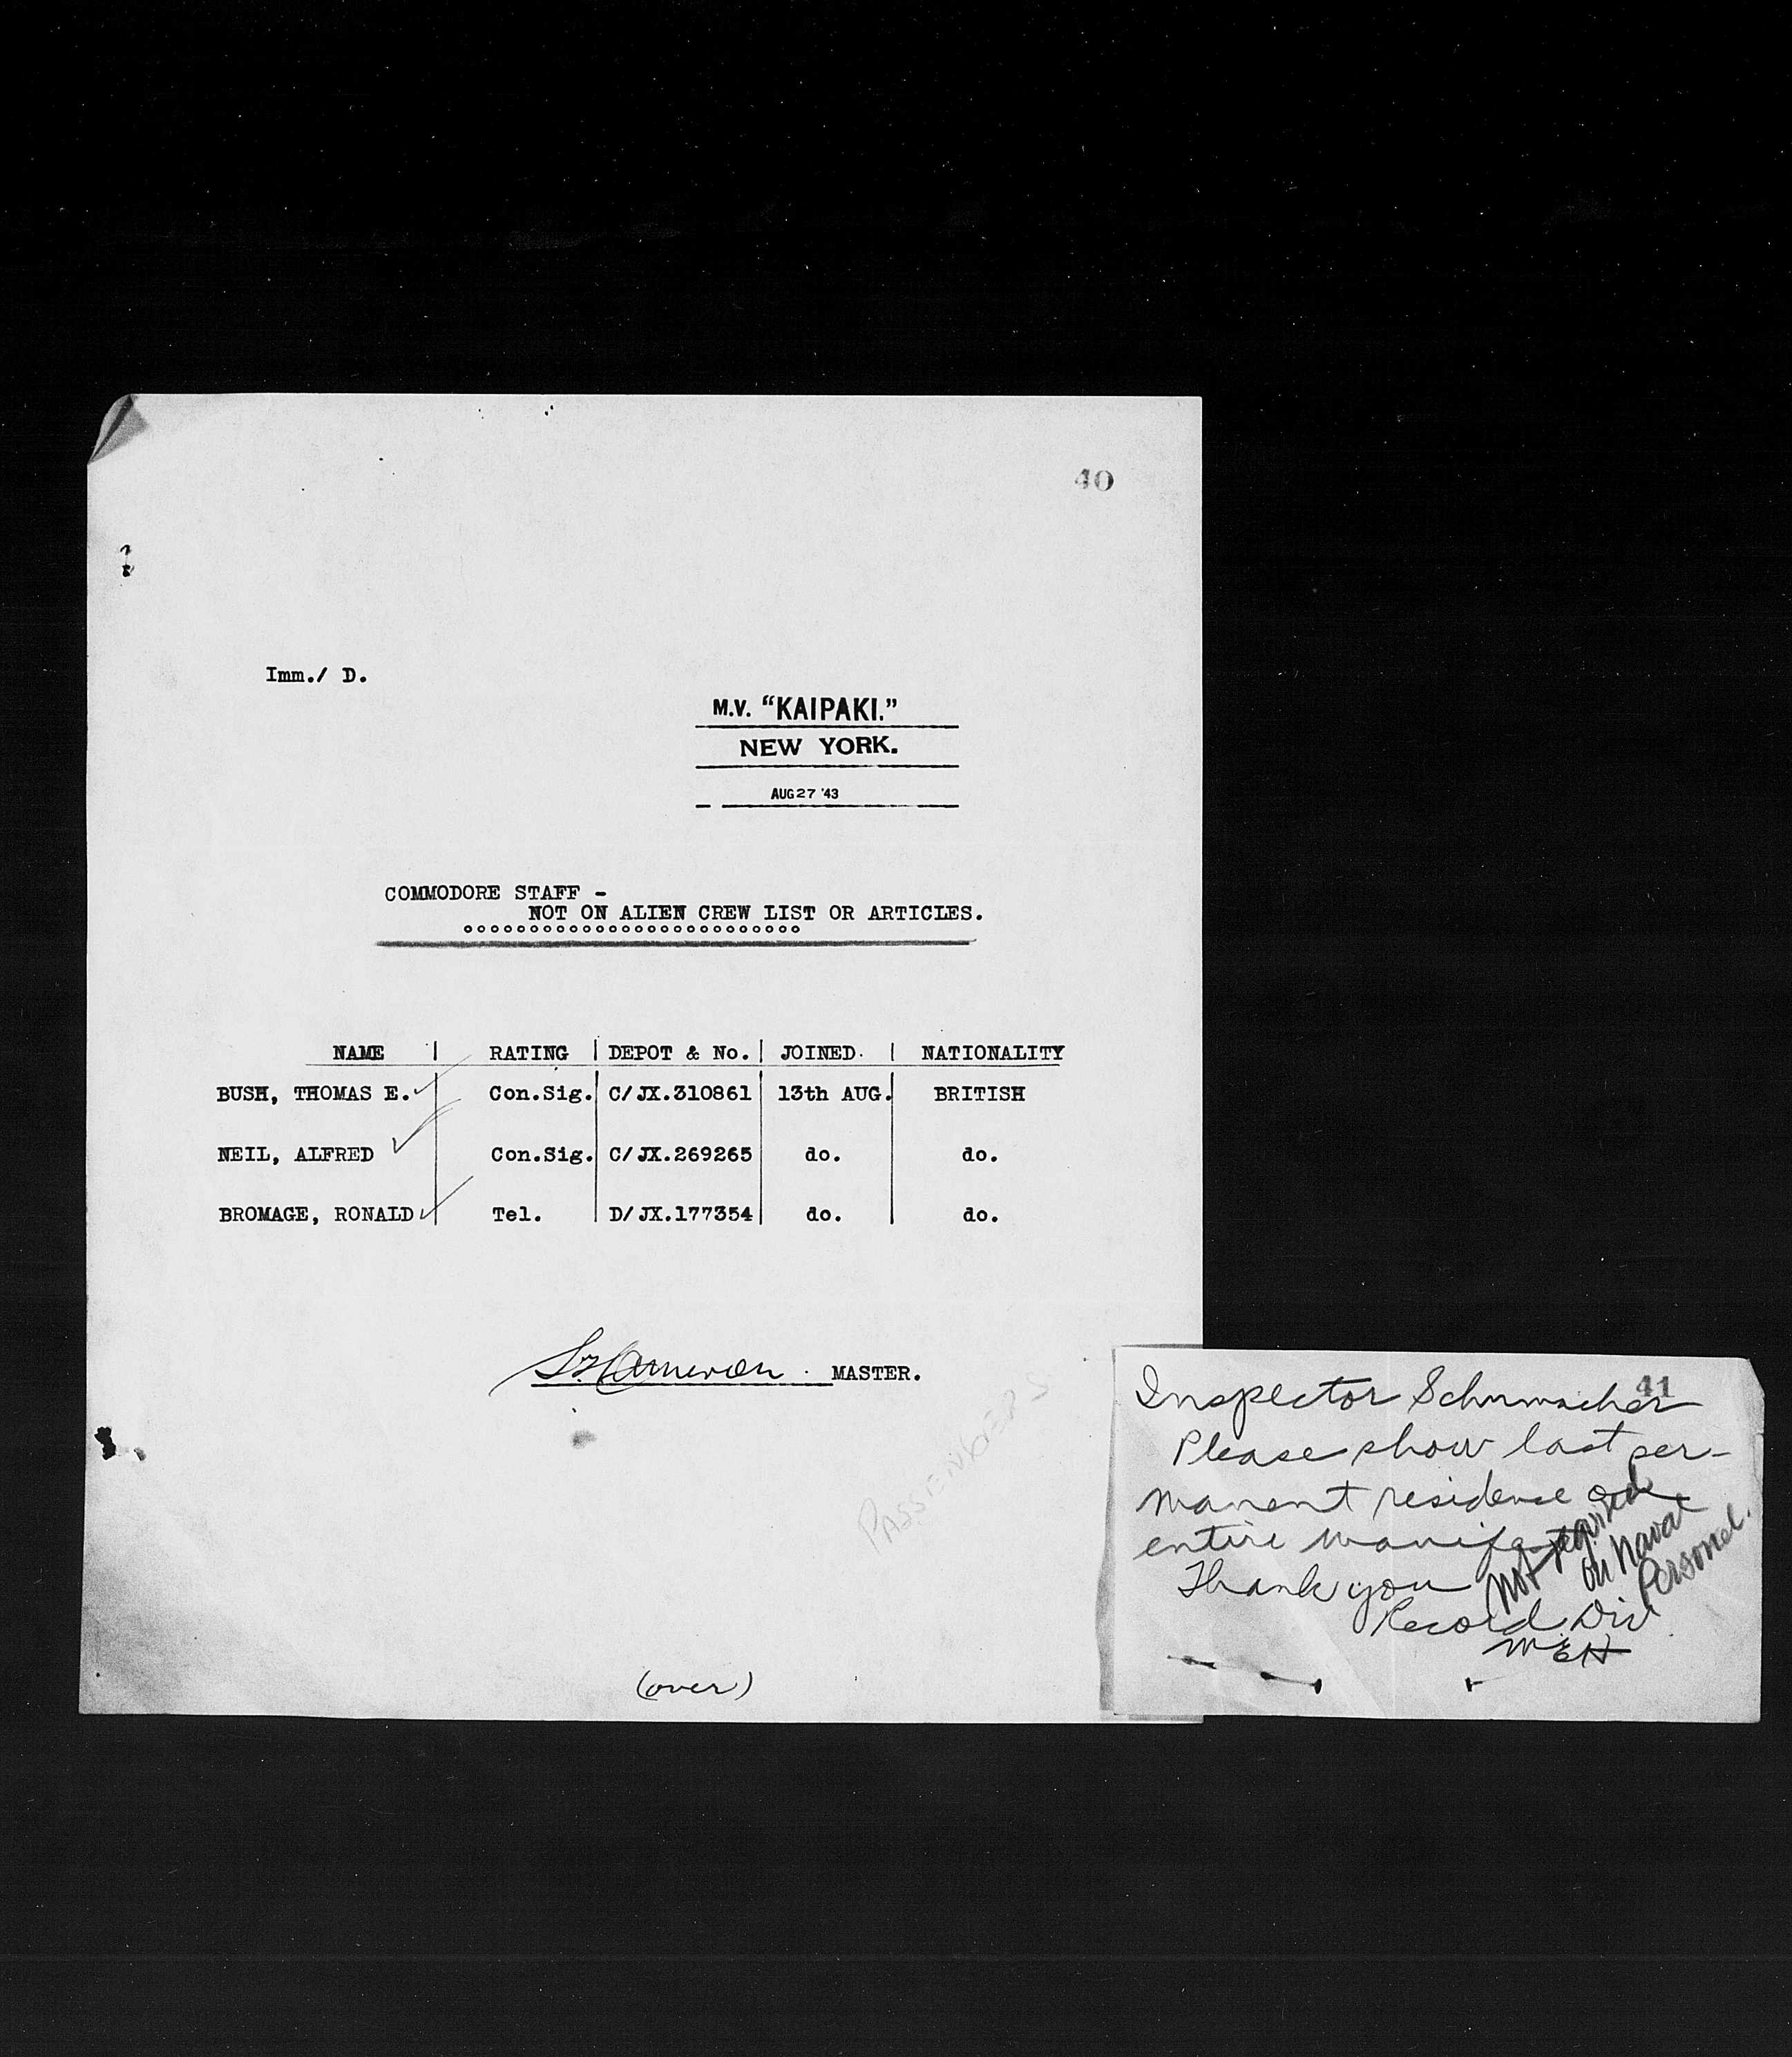 40
Imm./ D.
M.V. “KAIPAKI.”
NEW YORK.
AUG 27 '43
COMMODORE STAFF -
NOT ON ALIEN CREW LIST OR ARTICLES.
NAME | RATING | DEPOT & No. | JOINED. | NATIONALITY
BUSH, THOMAS E. Con.Sig. C/JX.310861 13th AUG. BRITISH
NEIL, ALFRED Con.Sig. C/JX.269265 do. do.
BROMAGE, RONALD Tel. D/JX.177354 do. do.
Cameron MASTER.
PASSENGERS
(over)
41
Inspector Schumacher
Please show last per-
manent residence on
entire manifest
Thank you
Record Div
MEH
Not required
on Naval
Personel.